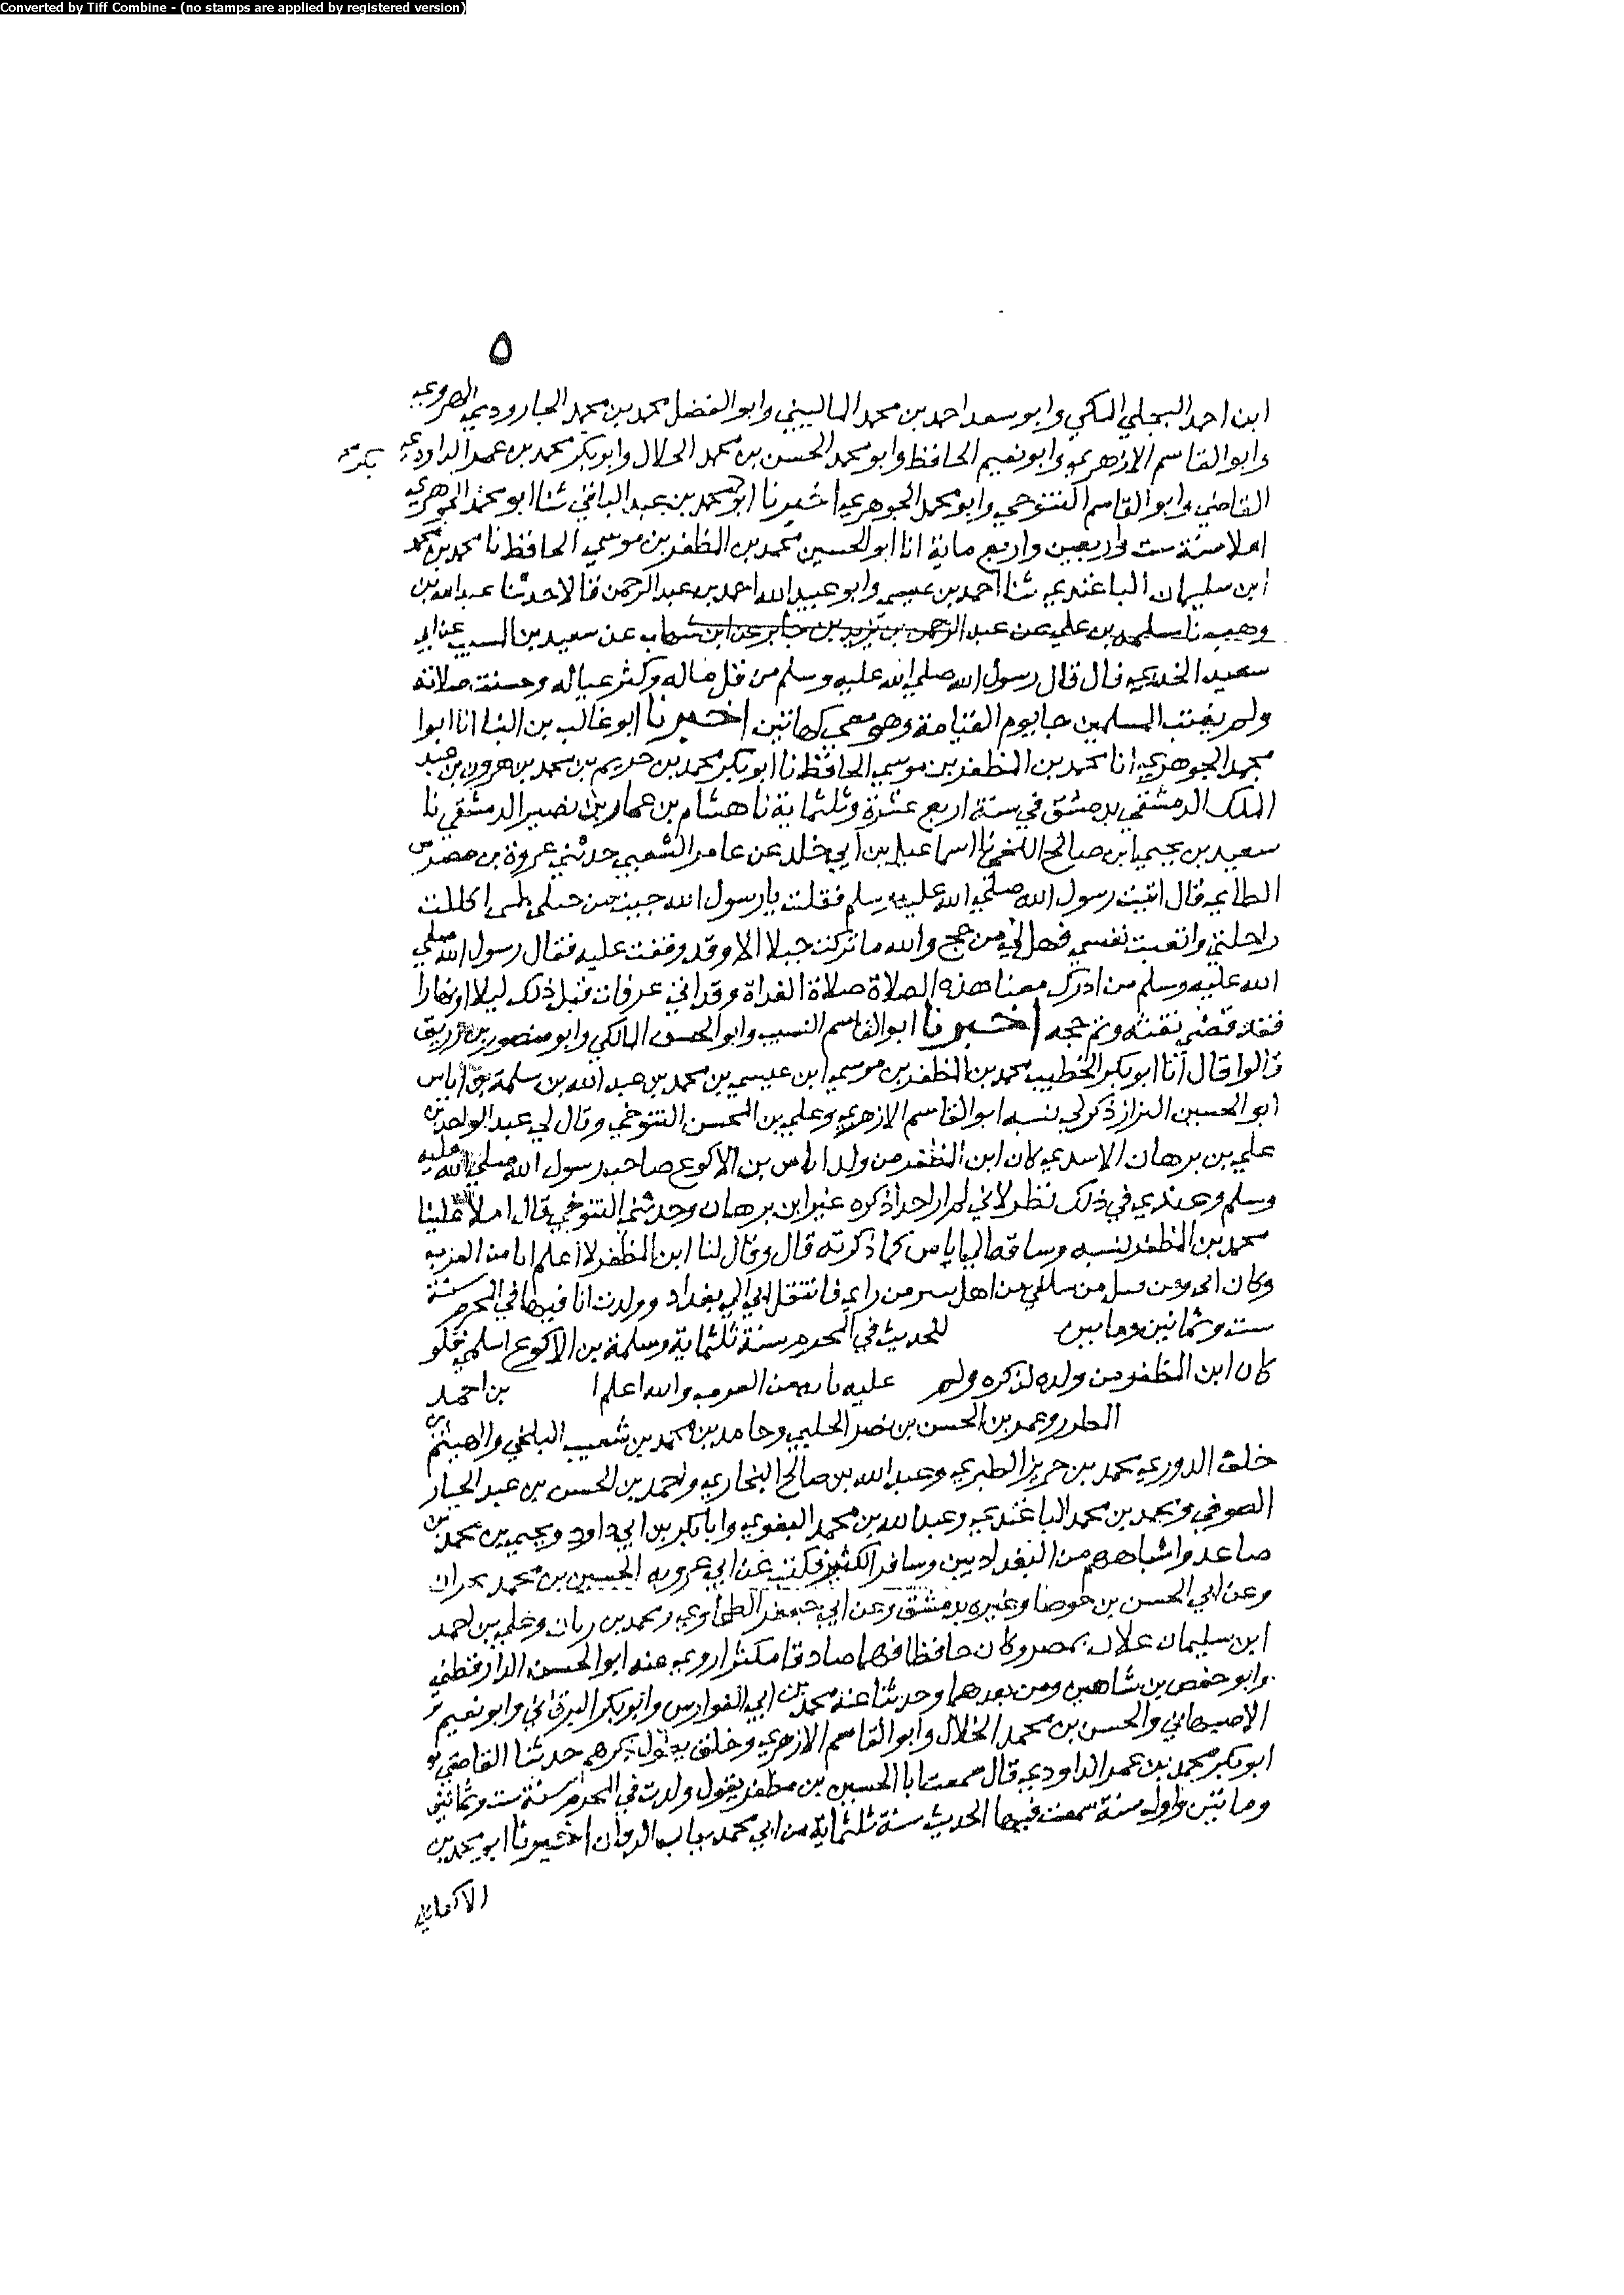 Converted by Tiff Combine - (no stamps are applied by registered version)
٥
ابن احمد البجلي المكي وابو سعد احمد بن محمد الماليني وابو الفضل محمد بن محمد الجارودي الهروي
وابو القاسم الازهري وابو نعيم الحافظ وابو محمد الحسن بن محمد الخلال وابو بكر محمد بن عمر الداودي
القاضي وابو القاسم التنوخي وابو محمد الجوهري اخبرنا ابو محمد بن عبد الباقي ثنا ابو محمد الجوهري
املا سنة ست واربعين واربع ماية انا ابو الحسين محمد بن المظفر بن موسي الحافظ نا محمد بن محمد
ابن سليمان الباغندي ثنا احمد بن عيسي وابو عبيد الله احمد بن عبد الرحمن قالا حدثنا عبد الله بن
وهب نا مسلمه بن علي عن عبد الرحمن بن يزيد بن جابر عن ابن شهاب عن سعيد بن المسيب عن ابي
سعيد الخدري قال قال رسول الله صلي الله عليه وسلم من قل ماله وكثر عياله وحسنت صلاته
ولم يغتب المسلمين جا يوم القيامة وهو معي كهاتين اخبرنا ابو غالب بن البنا انا ابوا
محمد الجوهري انا محمد بن المظفر بن موسي الحافظ نا ابو بكر محمد بن خريم بن محمد بن هرون بن عبد
الملك الدمشقي بدمشق في سنة اربع عشرة وثلثماية نا هشام بن عمار بن نصير الدمشقي نا
سعيد بن يحيي ابن صالح اللخمي نا اسماعيل بن ابي خلد عن عامر الشعبي حدثني عروة بن مضرس
الطاي قال اتيت رسول الله صلي الله عليه وسلم فقلت يا رسول الله جيت من جبلي طي اكللت
راحلتي واتعبت نفسي فهل لي من حج والله ما تركت جبلا الا وقد وقفت عليه فقال رسول الله صلي
الله عليه وسلم من ادرك معنا هذه الصلاة صلاة الغداة وقد اتي عرفات قبل ذلك ليلا او نهارا
فقد قضي تفثه وتم حجه اخبرنا ابو القاسم النسيب وابو الحسن المالكي وابو منصور بن زريق
قالوا قال انا ابو بكر الخطيب محمد بن المظفر بن موسي ابن عيسي بن محمد بن عبد الله بن سلمة بن اياس
ابو الحسين البزاز ذكر لي نسبه ابو القاسم الازهري وعلي بن المحسن التنوخي وقال لي عبد الواحد بن
علي بن برهان الاسدي كان ابن المظفر من ولد اياس بن الاكوع صاحب رسول الله صلي الله عليه
وسلم وعندي في ذلك نظر لاني لم ار احدا ذكره غير ابن برهان وحدثني التنوخي قال املا علينا
محمد بن المظفر نسبه وساقه الي اياس كما ذكرته قال وقال لنا ابن المظفر لا اعلم انا من العرب
وكان ابي ومن سلفي من اهل سر من راي فانتقل ابي الي بغداد وولدت انا فيها في المحرم سنة
ست وثمانين ومايتين للحديث في المحرم سنة ثلثماية وسلمة بن الاكوع اسلمي فلو
كان ابن المظفر من ولده لذكره ولم عليه بانه من العرب والله اعلم بن احمد
وعمر بن الحسن بن نصر الحلبي وحامد بن محمد بن شعيب البلخي والهيثم بن
خلف الدوري محمد بن جرير الطبري وعبد الله بن صالح البخاري واحمد بن الحسن بن عبد الجبار
الصوفي ومحمد بن محمد الباغندي وعبد الله بن محمد البغوي وابا بكر بن ابي داود ويحيي بن محمد بن
صاعد واشباههم من البغداديين وسافر الكثير فكتب عن ابي عروبه الحسين بن محمد بحران
وعن ابي الحسن بن جوصا وغيره بدمشق وعن ابي جعفر الطحاوي ومحمد بن ربان وعلي بن احمد
ابن سليمان علان بمصر وكان حافظا فهما صادقا مكثرا روي عنه ابو الحسن الدارقطني
وابو حفص بن شاهين ومن بعدهما وحدثنا عنه محمد بن ابي الفوارس وابو بكر البرقاني وابو نعيم
الاصبهاني والحسن بن محمد الخلال وابو القاسم الازهري وخلق يطول ذكرهم حدثنا القاضي
ابو بكر محمد بن عمر الداودي قال سمعت ابا الحسين بن مظفر يقول ولدت في المحرم سنة ست وثمانين
ومايتين واول سنة سمعت فيها الحديث سنة ثلثماية من ابي محمد بباب اخبرنا ابو محمد بن
الاكفاني